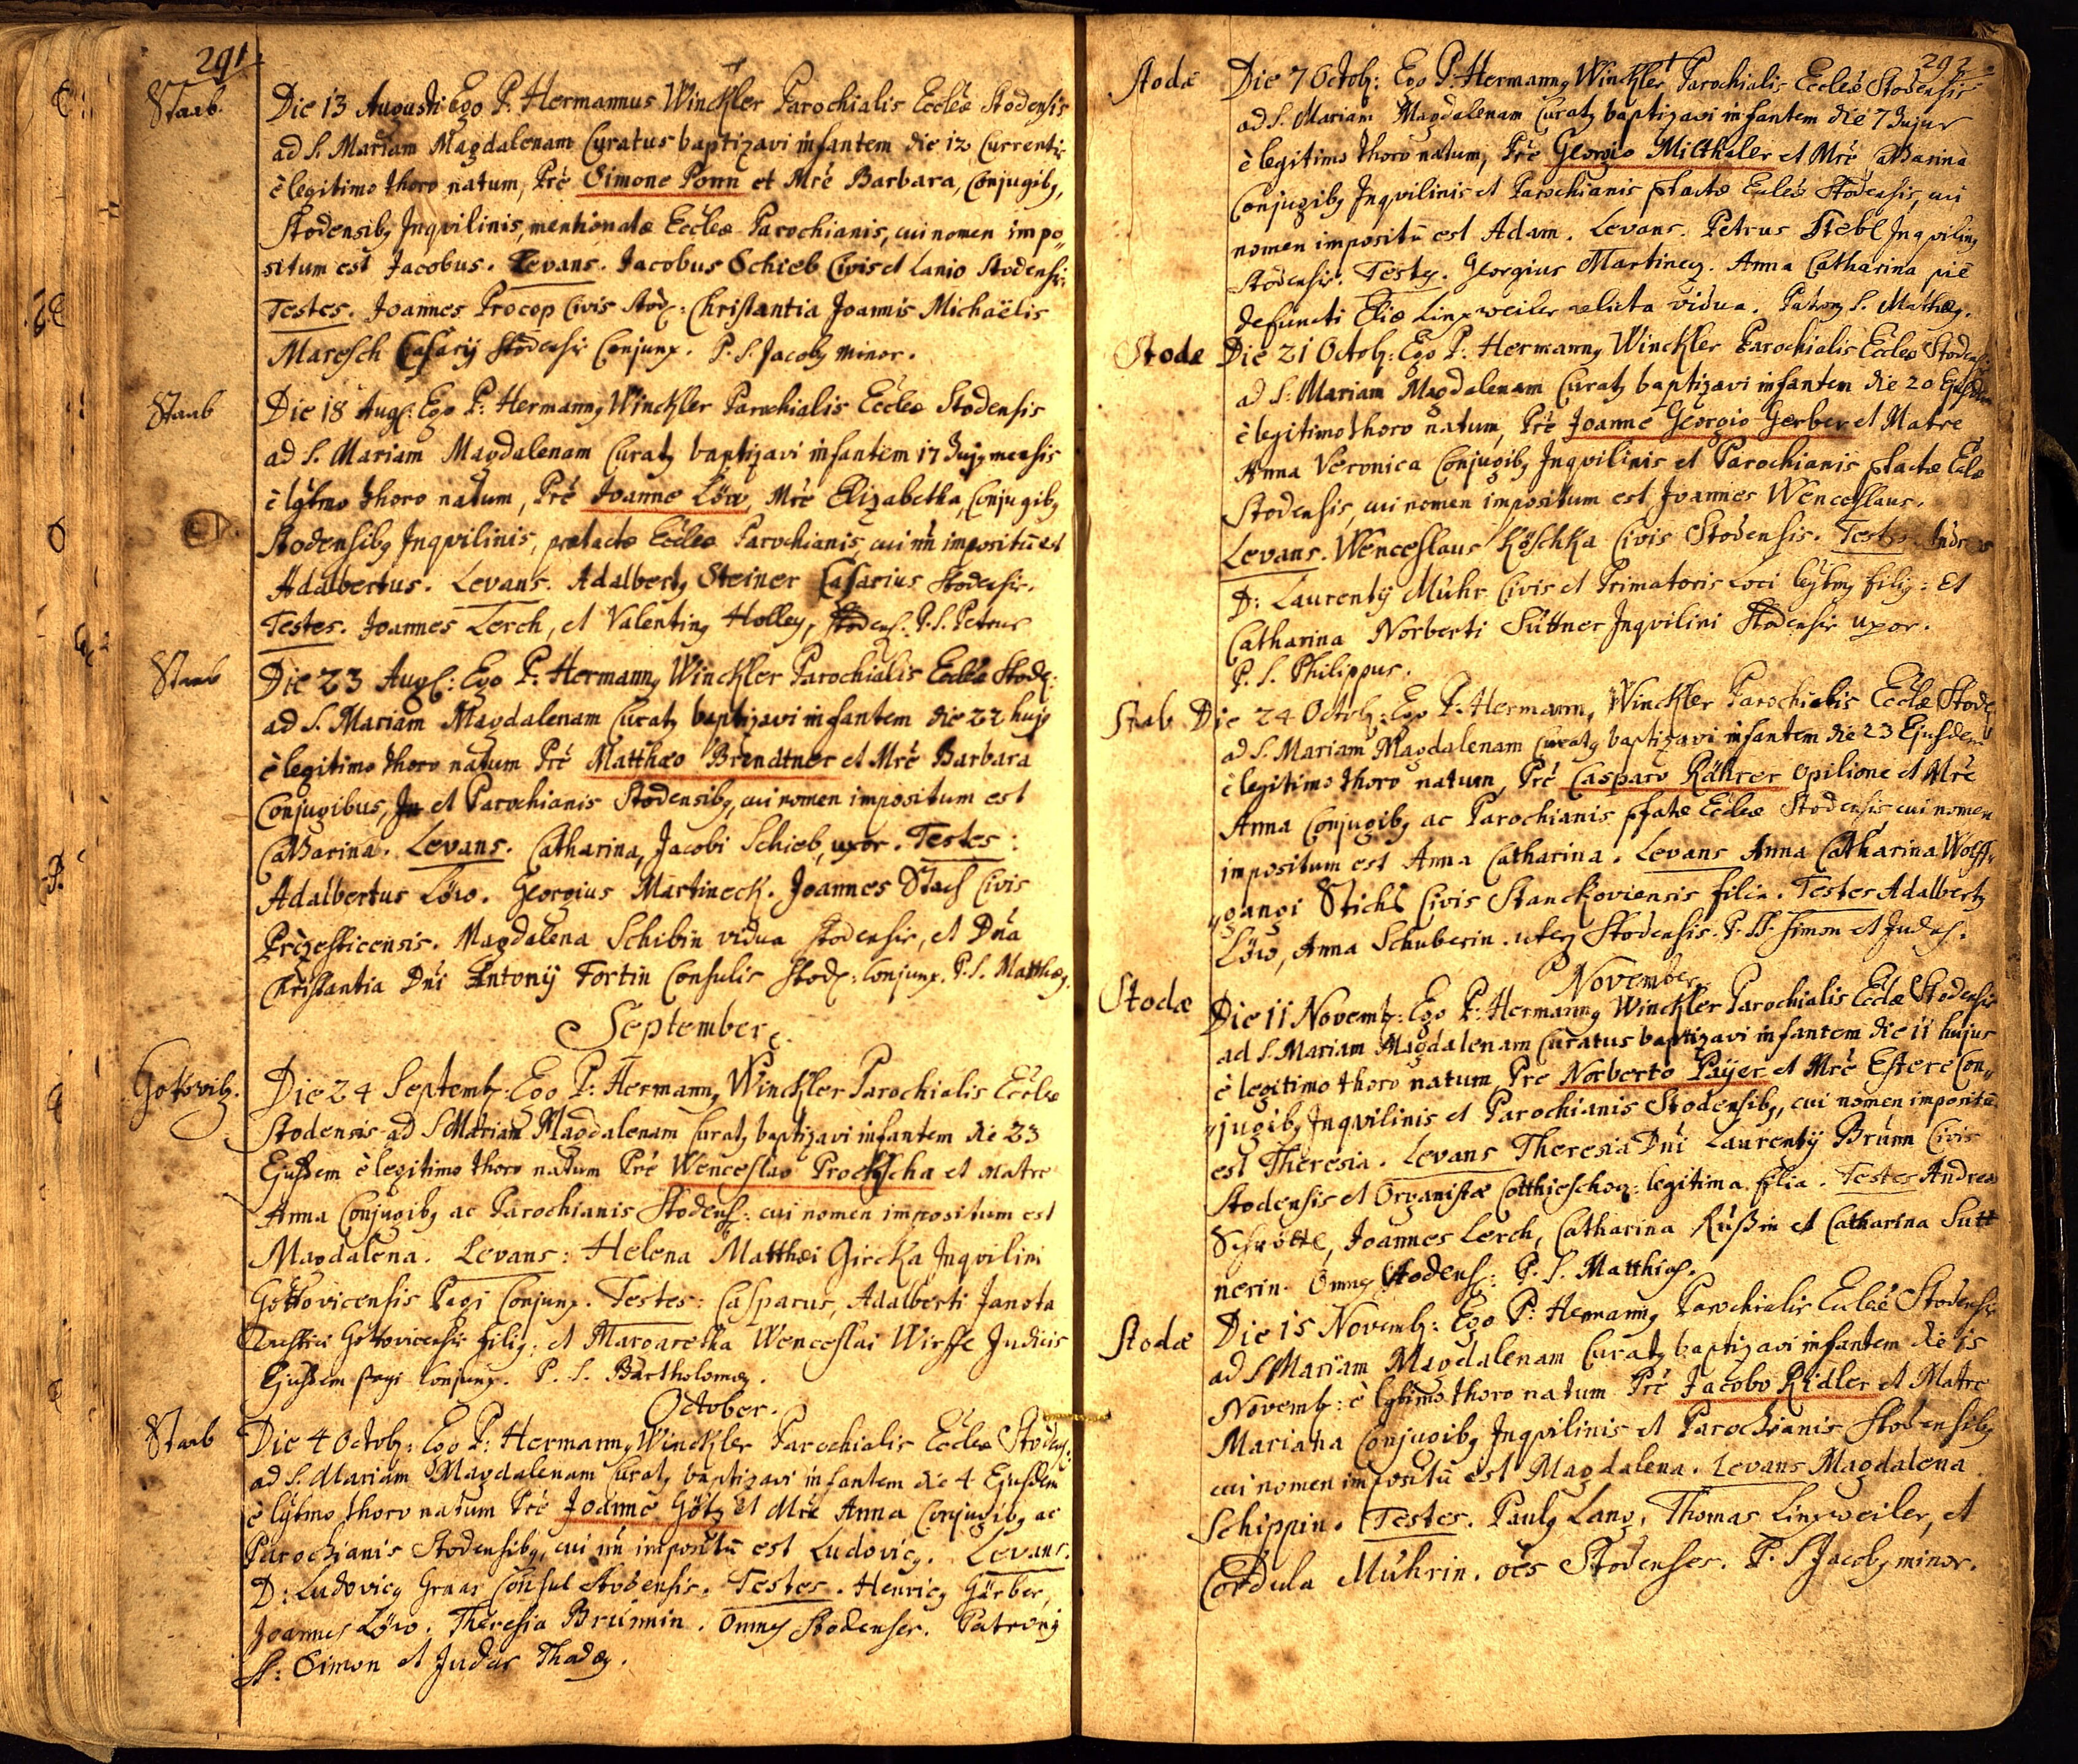 291.
Staab.
Die 13 Augusti Ego P. Hermannus Winckler Parochialis Eccleæ Stodensis
ad S. Mariam Magdalenam Curatus baptizavi infantem die 12 Currentis
è legitimo thoro natum, Prè Simone Ponn et Mrè Barbara, Conjugibg,
Stodensibg Inqvilinis, mentionatæ Eccleæ Parochianis, cui nomen impo„
situm est Jacobus. Levans. Jacobus Schieb Civis et Lanio Stodensis.
Testes. Joannes Procop Civis Stod: Christantia Joannis Michaëlis
Maresch Casarij Stodensis Conjunx. P. S. Jacobg minor.
Staab
Die 18 Aug: Ego P: Hermanng Winckler Parochialis Eccleæ Stodensis
ad S. Mariam Magdalenam Curatg baptizavi infantem 17 hujg mensis
è lgtmo thoro natum, Prè Joanne Löw, Mrè Elizabetha, Conjugibg
Stodensibg Inqvilinis, prætactæ Eccleæ Parochianis, cui nn impositū est
Adalbertus. Levans. Adalbertg Steiner Casarius Stodensis.
Testes. Joannes Lerch, et Valenting Holleg, Stodens: P. S. Petrus
Staab
Die 23 Aug: Ego P: Hermanng Winckler Parochialis Eccleæ Stod:
ad S. Mariam Magdalenam Curatg baptizavi infantem die 22 hujg
è legitimo thoro natum Prè Matthæo Brendtner et Mrè Barbara
Conjugibus, In et Parochianis Stodensibg, cui nomen impositum est
Catharina. Levans. Catharina, Jacobi Schieb, uxor. Testes:
Adalbertus Löw. Georgius Martineck. Joannes Stach Civis
Przesticensis. Magdalena Schibin vidua Stodensis, et Dna
Christantia Dni Antonij Fortin Consulis Stod: Conjunx. P. S. Matthæg.
September
Gottovitz.
Die 24 Septemb. Ego P: Hermanng Winckler Parochialis Eccleæ
Stodensis ad S Mariam Magdalenam Curatg baptizavi infantem die 23
Ejusdem è legitimo thoro natum Prè Wenceslao Prockscha et Matre
Anna Conjugibg ac Parochianis Stodens: cui nomen impositum est
Magdalena. Levans: Helena Matthæi Gircka Inqvilini
Gottovicensis Pagi Conjunx. Testes: Casparus, Adalberti Janota
Rustici Gottovicensis filig, et Margaretha Wenceslai Wirsse Judicis
Ejusdem pagi Conjunx. P. S. Bartholomæg.
October.
Staab
Die 4 Octob: Ego P: Hermanng Winckler Parochialis Eccleæ Stodens:
ad S. Mariam Magdalenam Curatg baptizavi infantem die 4 Ejusdem
è lgtmo thoro natum Prè Joanne Götz et Mrè Anna Conjugibg ac
Parochianis Stodensibg, cui nn impositū est Ludovicg. Levans.
D: Ludovicg Graas Consul Stodensis. Testes. Henricg Gärber,
Joannes Löw. Theresia Brunnin. Omnes Stodenses. Patroni
SS: Simon et Judas Thadæg.
292.
Stodæ
Die 7 Octob: Ego P. Hermanng Winckler Parochialis Eccleæ Stodensis
ad S. Mariam Magdalenam Curatg baptizavi infantem die 7 hujus
è legitimo thoro natum, Prè Georgio Milthaler et Mrè Catharina
Conjugibg Inqvilinis et Parochianis pfactæ Eccleæ Stodensis, cui
nomen impositū est Adam. Levans. Petrus Stebl Inqviling
Stodensis. Testes. Georgius Martineg. Anna Catharina piè
defuncti Eliæ Linxweiler relicta vidua. Patrong S. Matthæg.
Stodæ
Die 21 Octob: Ego P: Hermanng Winckler Parochialis Eccleæ Stodens:
ad S: Mariam Magdalenam Curatg baptizavi infantem die 20 Ejusdem
è legitimo thoro natum, Prè Joanne Georgio Gerber et Matre
Anna Veronica Conjugibg Inqvilinis et Parochianis pfactæ Eclæ
Stodensis, cui nomen impositum est Joannes Wenceslaus.
Levans. Wenceslaus Köschka Civis Stodensis. Testes. Andreas
D: Laurentij Muhr Civis et Primatoris Loci legtmg filig: Et
Catharina Norberti Süttner Inqvilini Stodensis uxor.
P. S. Philippus.
Stab
Die 24 Octob: Ego P: Hermanng Winckler Parochialis Ecclæ Stod
ad S. Mariam Magdalenam Curatg baptizavi infantem die 23 Ejusdem
è legitimo thoro natum, Prè Casparo Rährer Opilione et Mrè
Anna Conjugibg ac Parochianis pfatæ Eccleæ Stodensis, cui nomen
impositum est Anna Catharina. Levans Anna Catharina Wolff„
„gangi Stichl Civis Stanckoviensis filia. Testes Adalbertg
Löw, Anna Schuberin. uterg Stodensis. P. SS. Simon et Judas.
November
Stodæ
Die 11 Novemb: Ego P: Hermanng Winckler Parochialis Ecclæ Stodensis
ad S. Mariam Magdalenam Curatus baptizavi infantem die 11 hujus
è legitimo thoro natum, Pre Norberto Paijer et Mrè Estere Con„
„jugibg Inqvilinis et Parochianis Stodensibg, cui nomen impositū
est Theresia. Levans Theresia Dni Laurentij Brunn Civis
Stodensis et Organistæ Cotthieschov: legitima filia. Testes Andreas
Schröttl, Joannes Lerch, Catharina Rußin et Catharina Sutt
nerin. Omnes Stodens: P. S. Matthias.
Stodæ
Die 15 Novemb: Ego P: Hermanng Parochialis Eccleæ Stodensis
ad S Mariam Magdalenam Curatg baptizavi infantem die 15
Novemb: è lgtimo thoro natum Prè Jacobo Ridler et Matre
Mariana Conjugibg Inqvilinis et Parochianis Stodensibg
cui nomen impositū est Magdalena. Levans Magdalena
Schippin. Testes. Paulg Lang, Thomas Linxweiler, et
Cordula Muhrin. oēs Stodenses. P. S Jacobg minor.